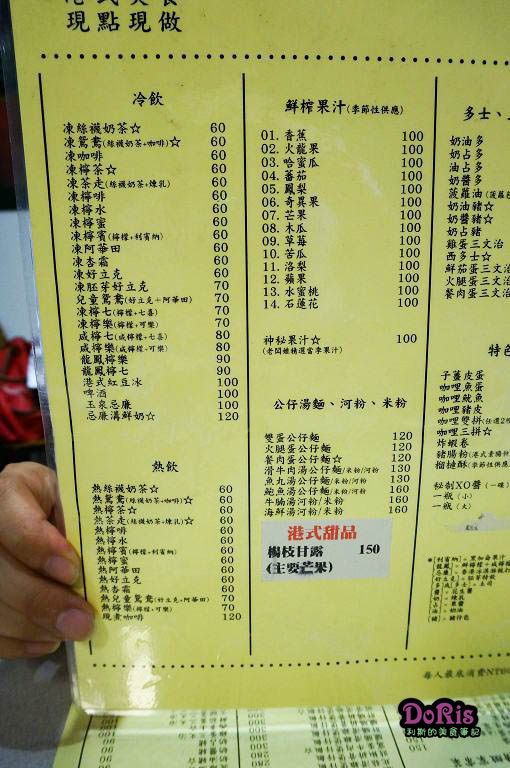 現點現做
冷飲
凍絲襪奶茶☆ 60
凍鴛鴦(絲襪奶茶+咖啡)☆ 60
凍咖啡 60
凍檸茶☆ 60
凍茶走(絲襪奶茶+煉乳) 60
凍檸啡 60
凍檸水 60
凍檸蜜 60
凍檸賓(檸檬+利賓納) 60
凍阿華田 60
凍杏霜 60
凍好立克 60
凍胚芽好立克 70
兒童鴛鴦(好立克+阿華田) 70
凍檸七(檸檬+七喜) 70
凍檸樂(檸檬+可樂) 70
咸檸七(咸檸檬+七喜) 80
咸檸樂(咸檸檬+可樂) 80
龍鳳檸樂 90
龍鳳檸七 90
港式紅豆冰 100
啤酒 100
玉泉忌廉 100
忌廉溝鮮奶☆ 120
熱飲
熱絲襪奶茶☆ 60
熱鴛鴦(絲襪奶茶+咖啡)☆ 60
熱檸茶☆ 60
熱茶走(絲襪奶茶+煉乳)☆ 60
熱檸啡 60
熱檸水 60
熱檸賓(檸檬+利賓納) 60
熱檸蜜 60
熱阿華田 60
熱好立克 60
熱杏霜 60
熱兒童鴛鴦(好立克+阿華田) 70
熱檸樂(檸檬+可樂) 70
現煮咖啡 120
鮮榨果汁(季節性供應)
01. 香蕉 100
02. 火龍果 100
03. 哈蜜瓜 100
04. 蕃茄 100
05. 鳳梨 100
06. 奇異果 100
07. 芒果 100
08. 木瓜 100
09. 草莓 100
10. 苦瓜 100
11. 洛梨 100
12. 蘋果 100
13. 水蜜桃 100
14. 石蓮花 100
神秘果汁☆ 100
(老闆娘精選當季果汁)
公仔湯麵、河粉、米粉
雙蛋公仔麵 120
火腿蛋公仔麵 120
餐肉蛋公仔麵☆ 120
滑牛肉湯公仔麵/米粉/河粉 130
魚丸湯公仔麵/米粉/河粉 130
鮑魚湯公仔麵/米粉/河粉 160
牛腩湯河粉/米粉 160
海鮮湯河粉/米粉 160
港式甜品
楊枝甘露 150
(主要芒果)
多士、
奶油多
奶占多
油占多
奶醬多
菠蘿油(菠蘿
奶油豬☆
奶醬豬☆
奶占豬
雞蛋三文治
西多士☆
鮮茄蛋三文治
火腿蛋三文治
餐肉蛋三文治
特色
子薑皮蛋
咖哩魚蛋
咖哩魷魚
咖哩豬皮
咖哩雙拼(任選2
咖哩三拼☆
炸蝦卷
豬腸粉(港式素腸
榴槤酥(季節性供應)
秘製XO醬(一碟)
一瓶(小)
一瓶(大)
每人最底消費NT
DoRis
利斯的美食筆記